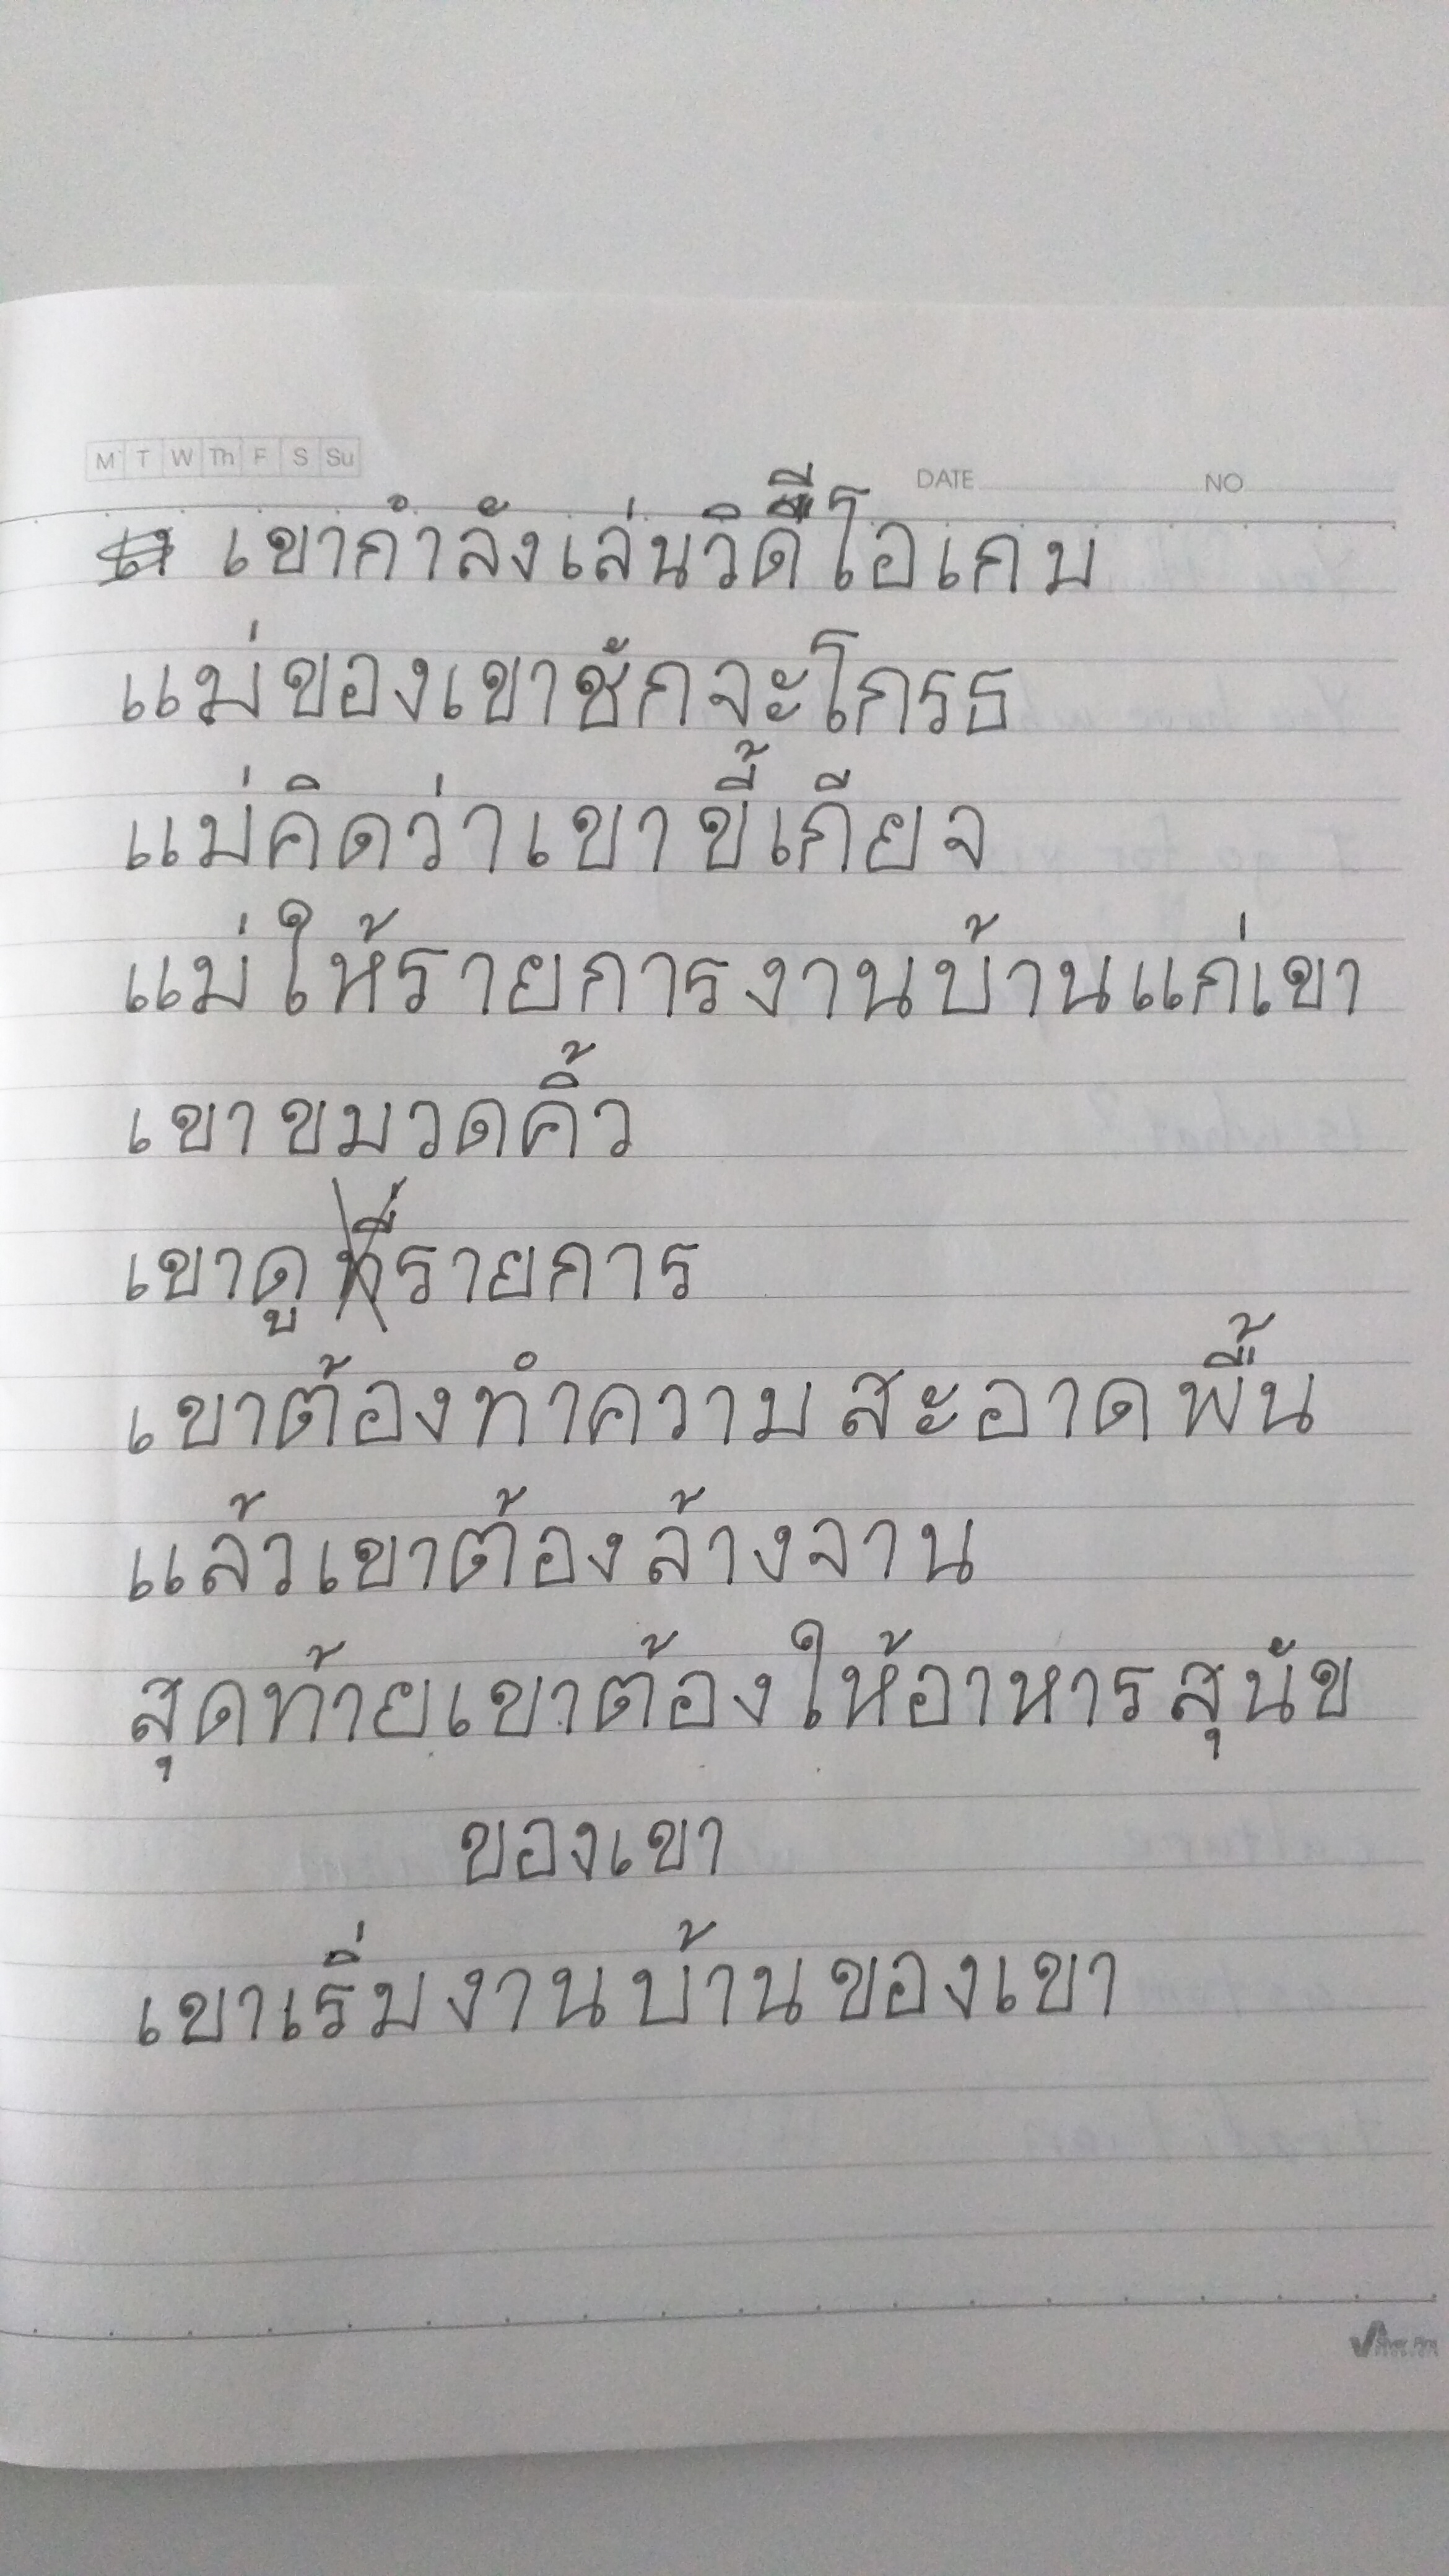 M T W Th F S Su
DATE NO
เขากำลังเล่นวิดีโอเกม
แม่ของเขาชักจะโกรธ
แม่คิดว่าเขาขี้เกียจ
แม่ให้รายการงานบ้านแก่เขา
เขาขมวดคิ้ว
เขาดูรายการ
เขาต้องทำความสะอาดพื้น
แล้วเขาต้องล้างจาน
สุดท้ายเขาต้องให้อาหารสุนัข
ของเขา
เขาเริ่มงานบ้านของเขา